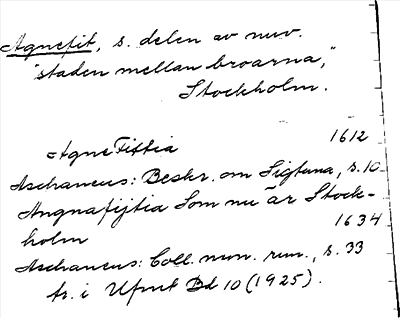 Agnefit, s. delen av nuv.
"staden mellan broarna,"
Stockholm.
Agne Fittia 1612
Aschaneus: Beskr. om Sigtuna, s. 10
Angnafijtia Som nu är Stock-
holm 1634
Aschaneus: Coll. mon. run., s. 33
tr. i Ufmt Bd 10 (1925).